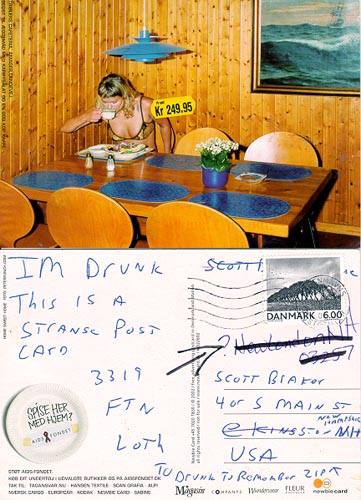 Kr 249.95
IM DRUNK
THIS IS A
STRANGE POST
CARD
3319
FTN
LOTH
SPISE HER
MED HJEM?
AIDS FONDET
STØT AIDS-FONDET.
KØB DIT UNDERTØJ I UDVALGTE BUTIKKER OG PÅ AIDSFONDET.DK
TAK TIL: TAGANSVAR.NU · HANSEN TEXTILE · SCAN GRAFIA · ALPI
MÆRSK CARGO · EUROPCAR · KODAK · NEWBIE CARD · SABINE
DANMARK 6.00
SCOTT
New London NH
03257
SCOTT BLAKOR
405 S MAIN ST
NEW HAMPSHIRE
KINGSTON NH
USA
TO DRUNK TO REMEMBER ZIP
Magasin
COMPANYS
Wonderwear
FLEUR
newbiecard